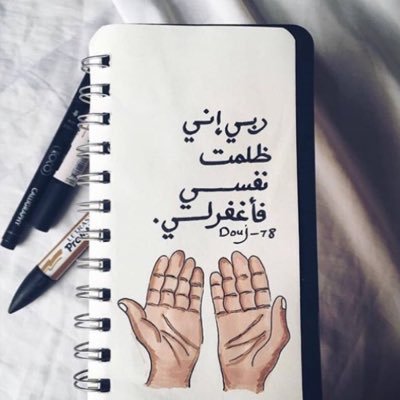 ربي إني
ظلمت
نفسي
فأغفرلي.
Douj-78
CALLIGRAPHY